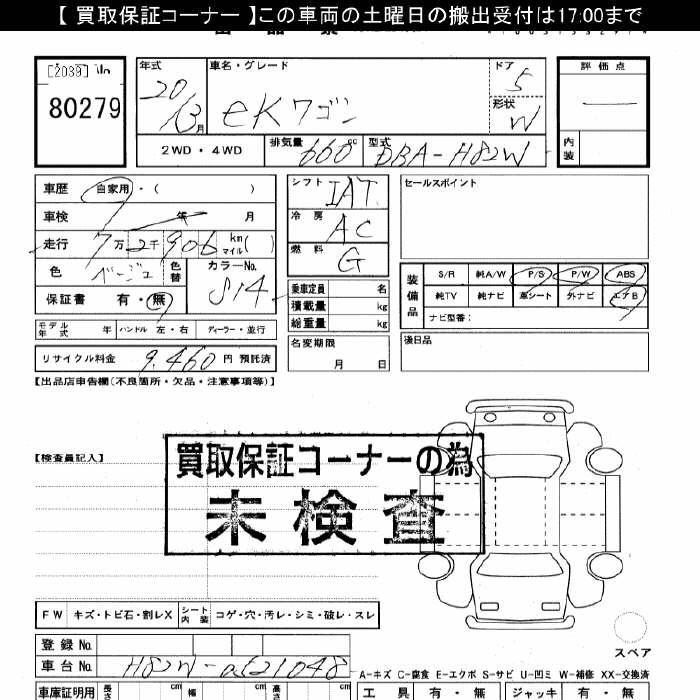 【 買取保証コーナー 】この車両の土曜日の搬出受付は17:00まで
[2039] No
80279
年式
20/3月
車名・グレード
eKワゴン
ドア
5
形状
W
評価点
内装
2WD・4WD
排気量 660cc
型式 DBA-H82W
車歴 自家用・( )
車検 年 月
走行 7万2千906 km マイル( )
色 ベージュ
色替
カラーNo. S14
保証書 有・無
モデル年式 年 ハンドル 左・右 ディーラー・並行
リサイクル料金 9,460 円 預託済
シフト IAT
冷房 AC
燃料 G
乗車定員 名
積載量 kg
総重量 kg
名変期限
月 日
セールスポイント
装備品
S/R 純A/W P/S P/W ABS
純TV 純ナビ 革シート 外ナビ エアB
ナビ型番：
後日品
【出品店申告欄(不良箇所・欠品・注意事項等)】
【検査員記入】
買取保証コーナーの為
未検査
FW キズ・トビ石・割レX シート内装 コゲ・穴・汚レ・シミ・破レ・スレ
登録No.
車台No. H82W-0621048
スペア
A-キズ C-腐食 E-エクボ S-サビ U-凹ミ W-補修 XX-交換済
車庫証明用 長さ cm 幅 cm 高さ cm
工具 有・無 ジャッキ 有・無